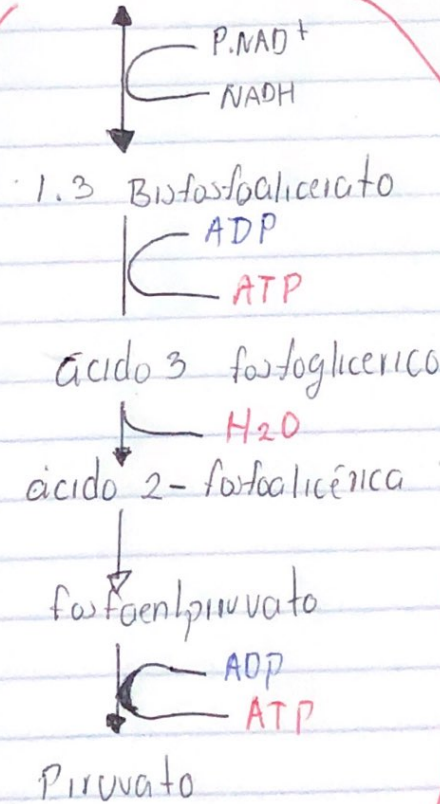 P.NAD+
NADH
1.3 Bisfosfoalicerato
ADP
ATP
ácido 3 fosfoglicerico
H2O
ácido 2- fosfoalicérica
fosfaenlpiruvato
ADP
ATP
Piruvato